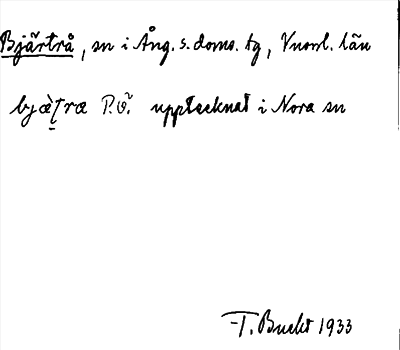 Bjärtrå, sn i Ång. s. doms. tg, Vnorrl. län
bjæ̀ʈra P.ö. upptecknat i Nora sn
T. Bucht 1933